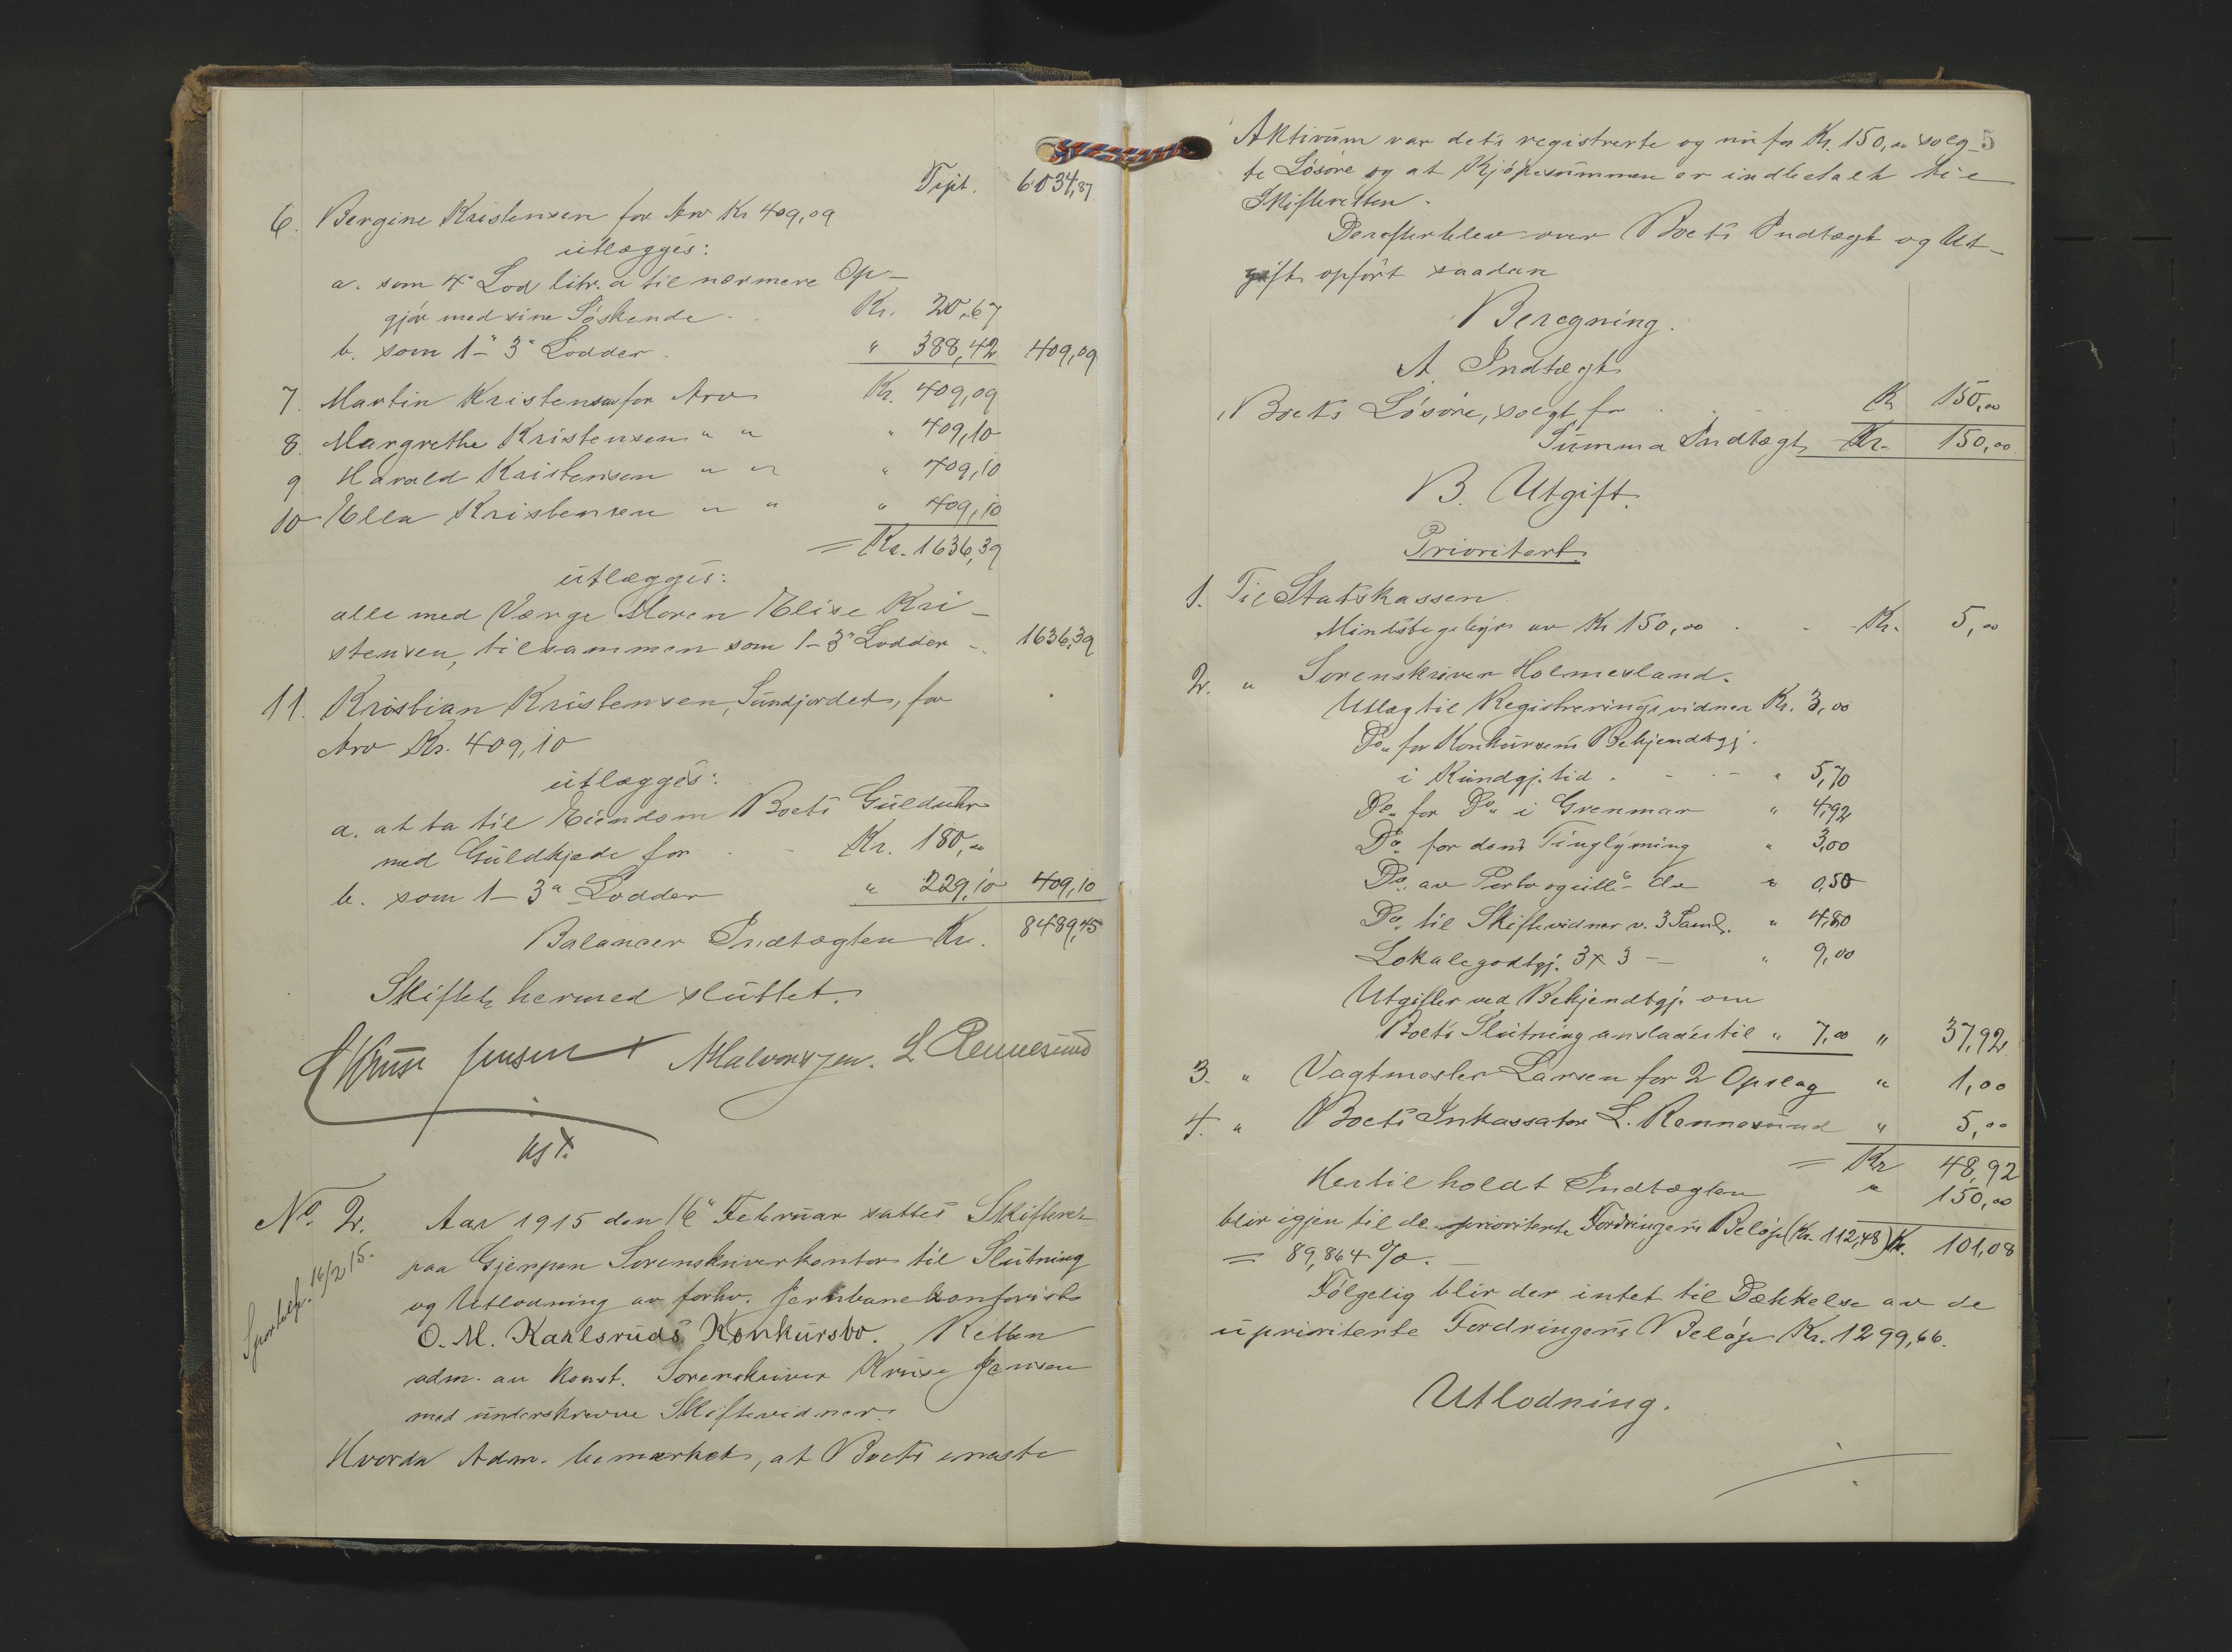 Trspt. 6034,87
6. Bergine Kristensen for Arv Kr 409,09
utlægges:
a. som 4" Lod litr. a til nærmere Op-
gjør med sine Søskende . . Kr. 20,67
b. som 1-"3" Lodder . " 388,42 409,09
7. Martin Kristensen for Arv Kr. 409,09
8. Margrethe Kristensen " " " 409,10
9. Harald Kristensen " " " 409,10
10 Ella Kristensen " " " 409,10
= Kr. 1636,39
utlægges:
alle med Værge Moren Elise Kri-
stensen, tilsammen som 1-3" Lodder - 1636,39
11. Kristian Kristensen, Sundjordet, for
Arv Kr. 409,10
utlægges:
a. at ta til Eiendom Boets Gulduhr
med Guldkjæde for - Kr. 180,00
b. som 1-3" Lodder " 229,10 409,10
Balancer Indtægten Kr. 8489,45
Skiftet hermed sluttet.
Kruse Jensen Halvorsen. L Rennesund
kst.
No. 2. Aar 1915 den 16" Februar sattes Skifteret
paa Gjerpen Sorenskriverkontor til Slutning
og Utlodning av forhv. Jernbanekonforist
O. M. Karlsruds Konkursbo. Retten
adm. av konst. Sorenskriver Kruse Jensen
med underskrevne Skiftevidner.
Hvorda Adm. bemærket, at Boets eneste
16/2 15.
5
Aktivum var dets registrerte og nu for Kr. 150,00 solg-
te Løsøre og at Kjøpesummen er indbetalt til
Skifteretten.
Derefter blev over Boets Indtægt og Ut-
gift opført saadan
Beregning.
A. Indtægt
Boets Løsøre, solgt for . . . K 150,00
Summa Indtægt Kr. 150,00
B. Utgift.
Prioritert.
1. Til Statskassen
Mindstegebyr av Kr 150,00 . . - Kr. 5,00
2. " Sorenskriver Holmesland.
Utlæg til Registreringsvidner Kr. 3,00
Do. for Konkursens Bekjendtgj.
i Kundgj. tid . - . - " 5,70
Do. for Do. i Grenmar " 4,92
Do. for dens Tinglysning " 3,00
Do. av Porto " 0,50
Do. til Skiftevidner v. 3 Saml. " 4,80
Lokalegodtgj. 3 x 3 - " 9,00
Utgifter ved Bekjendtgj. om
Boets Slutning anslaaes til " 7,00 " 37,92
3. " Vagtmester Larsen for 2 Opslag " 1,00
4. " Boets Inkassator L. Rennesund " 5,00
= Kr 48,92
Hertil holdt Indtægten " 150,00
blir igjen til de prioriterte Fordringers Beløp (Kr. 112,48) Kr. 101,08
= 89,864 %. -
Følgelig blir der intet til Dækkelse av de
uprioriterte Fordringers Beløp Kr. 1299,66.
Utlodning.